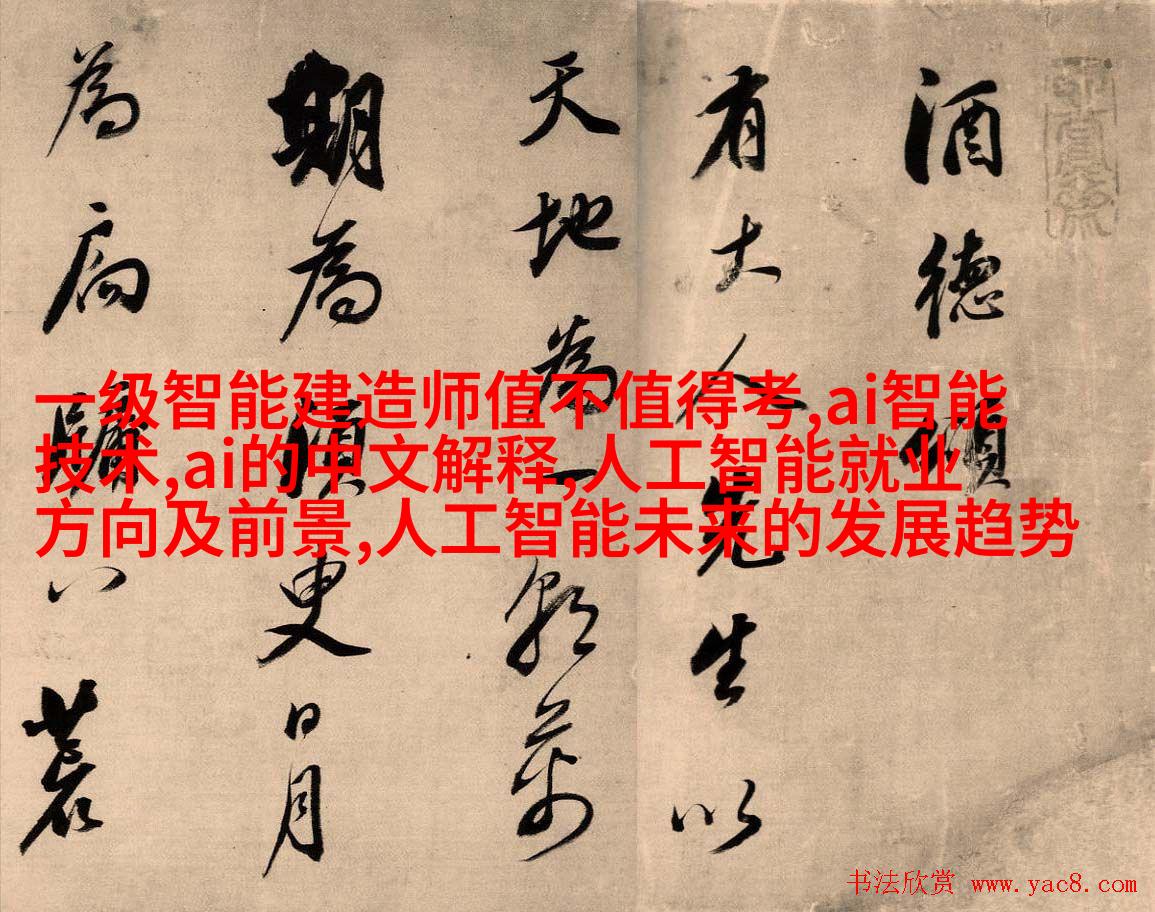 酒德頌
有大人先生以
天地為一朝萬
期為須臾日月
為扃牖八荒
一级智能建造师值不值得考,ai智能
技术,ai的中文解释,人工智能就业
方向及前景,人工智能未来的发展趋势
书法欣赏 www.yac8.com